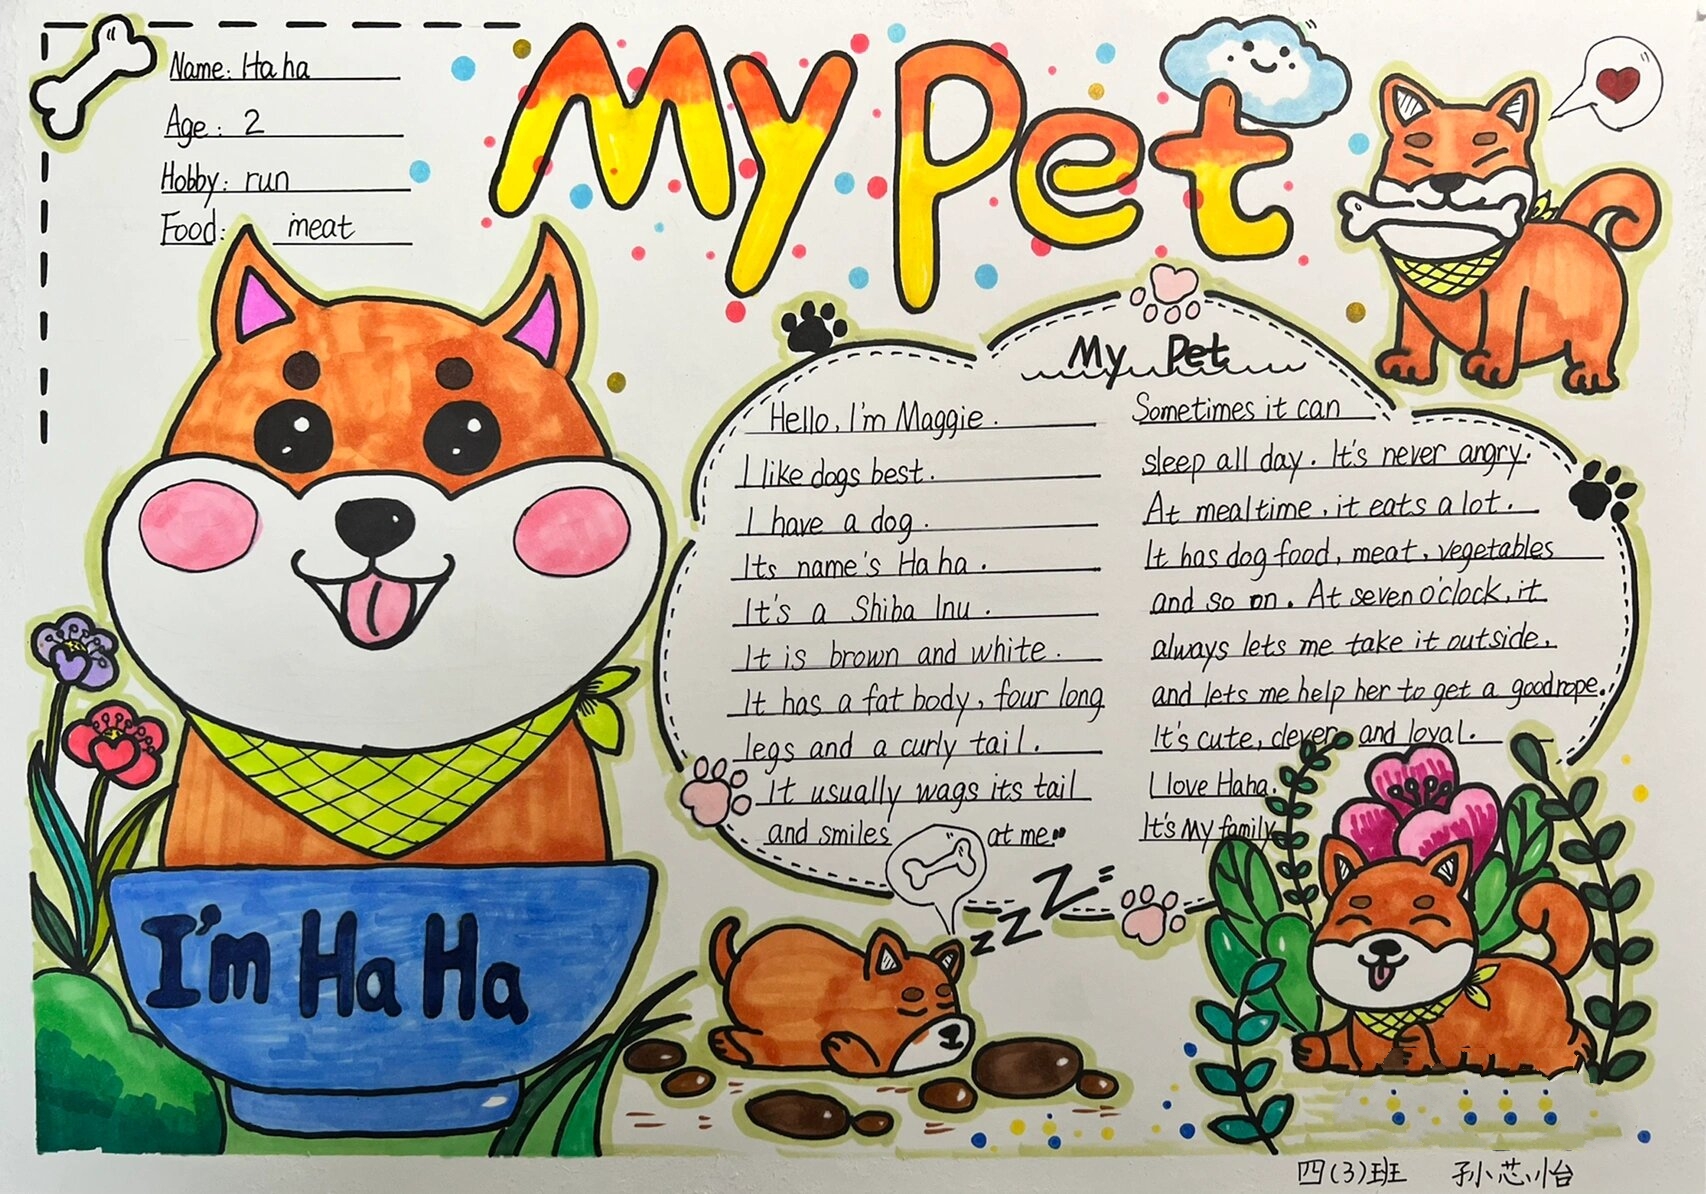 Name: Haha
Age: 2
Hobby: run
Food: meat
My Pet
My Pet
Hello, I'm Maggie.
I like dogs best.
I have a dog.
Its name's Haha.
It's a Shiba Inu.
It is brown and white.
It has a fat body, four long
legs and a curly tail.
It usually wags its tail
and smiles at me.
Sometimes it can
sleep all day. It's never angry.
At mealtime, it eats a lot.
It has dog food, meat, vegetables
and so on. At seven o'clock, it
always lets me take it outside,
and lets me help her to get a good rope.
It's cute, clever and loyal.
I love Haha.
It's My family
zzZ
I'm HaHa
四(3)班 孙芯怡